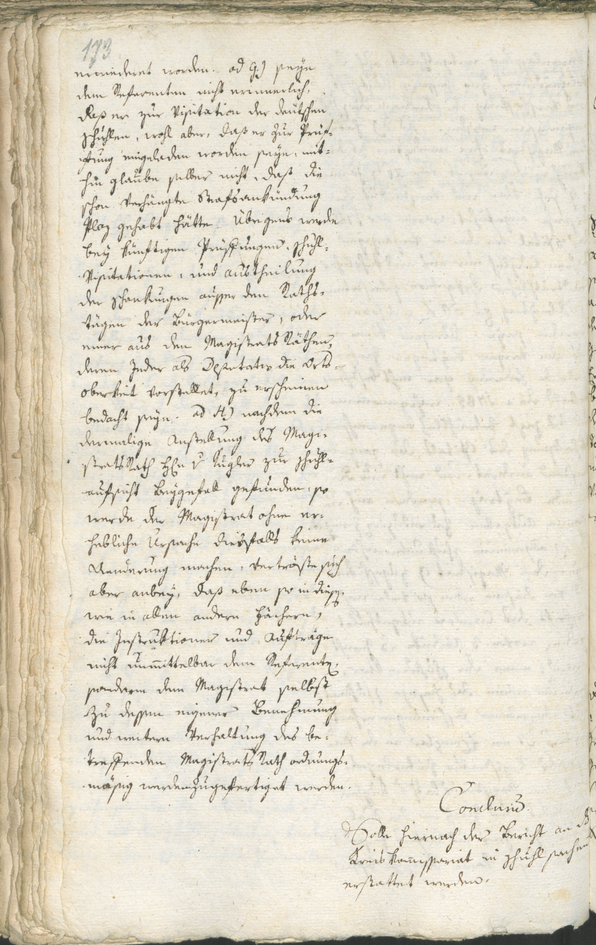 173
erwiederet worden. ad G) seye
dem Referenten nicht erinnerlich,
daß er zur Visitation der deutschen
Schuhlen, wohl aber, daß er zur Prüf-
fung eingeladen worden seye, mit-
hin glaube selber nicht, daß die
schon verhängte Strafsankündung
Plaz gehabt hätte. Übrigens werde
bey künftigen Prüfungen, Schuhl-
Visitationen, und Austheilung
der Schankungen ausser den Raths-
tägen der Bürgermeister, oder
einer aus den Magistrats Räthen,
deren Jeder als Deputatus die Orts
obrigkeit vorstellet, zu erscheinen
bedacht seyn. ad H) nachdem die
dermalige Anstellung des Magi-
strats Rath zur Schuhl-
aufsicht Beygefall gefunden, so
werde der Magistrat ohne er-
hebliche Ursache diesfalls keine
Aenderung machen, vertröste sich
aber anbey, daß eben so in diesem,
wie in allen andern Fächern,
die Instruktionen und Aufträge
nicht unmittelbar dem Referenten,
sondern dem Magistrat selbst
zu dessen eigener Benehmung
und weitern Verhaltung des be-
treffenden Magistrats Rath ordnungs-
mäsig werden zugefertiget werden.
Conclusum
Solle hiernach der Bericht an das
Kreiskommissariat in Schuhlsachen
erstattet werden.